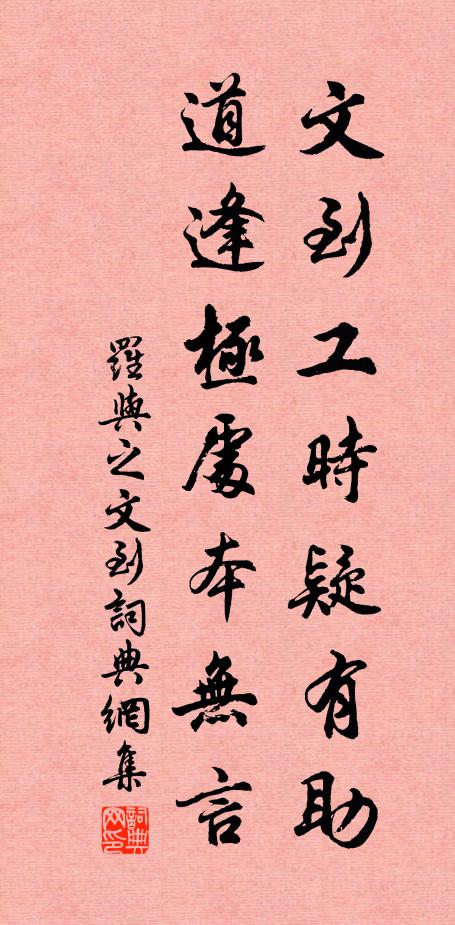 文到工時疑有助
道逢極處本無言
羅與之文到詞典網集
詞典网印